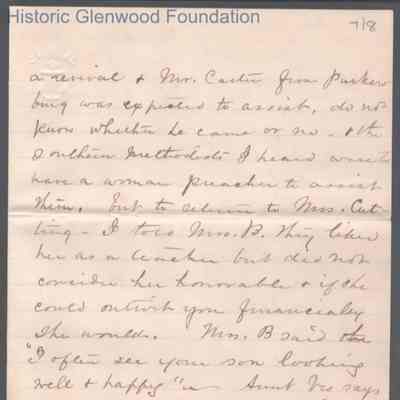 Historic Glenwood Foundation
7/8
a revival & Mr. Carter from Parkers
burg was expected to assist, do not
know whether he came or no - & the
Southern Methodists I heard were to
have a woman preacher to assist
them. But to return to Mrs. Cut-
ting - I told Mrs. B. they liked
her as a teacher but did not
consider her honorable & if she
could outwit you financially
she would. Mrs. B said
"I often see your son looking
well & happy" Aunt Vic says